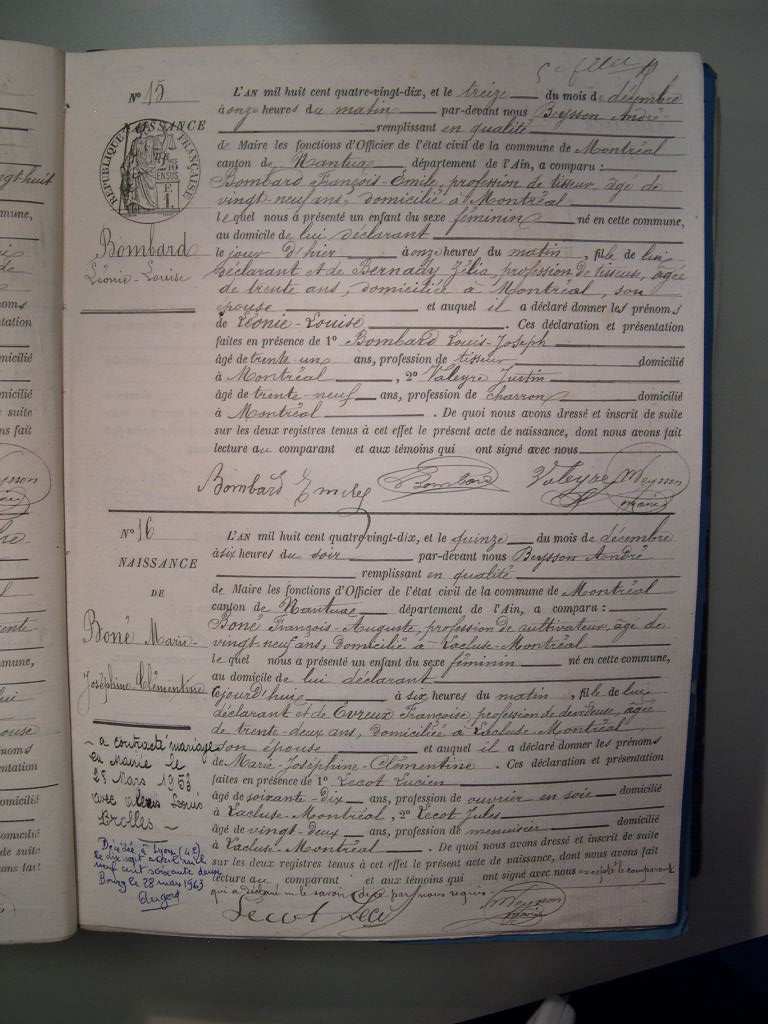 5
N° 15
L'AN mil huit cent quatre-vingt-dix, et le treize du mois de décembre
à onze heures du matin par-devant nous Beysson André
NAISSANCE
remplissant en qualité
RÉPUBLIQUE FRANÇAISE
de Maire les fonctions d'Officier de l'état civil de la commune de Montréal
canton de Nantua département de l'Ain, a comparu :
Bombard François-Emile, profession de tisseur, âgé de
vingt-neuf ans, domicilié à Montréal
le quel nous a présenté un enfant du sexe féminin né en cette commune,
au domicile de lui déclarant
Bombard
Léonie-Louise
le jour d'hier à onze heures du matin, fille de lui
déclarant et de Bernady Zélia, profession de tisseuse, âgée
de trente ans, domiciliée à Montréal, son
épouse et auquel il a déclaré donner les prénoms
de Léonie-Louise. Ces déclaration et présentation
faites en présence de 1° Bombard Louis-Joseph
âgé de trente un ans, profession de tisseur domicilié
à Montréal, 2° Valeyre Justin
âgé de trente-neuf ans, profession de charron domicilié
à Montréal. De quoi nous avons dressé et inscrit de suite
sur les deux registres tenus à cet effet le présent acte de naissance, dont nous avons fait
lecture au comparant et aux témoins qui ont signé avec nous
Bombard Bombard Valeyre
maire
N° 16
L'AN mil huit cent quatre-vingt-dix, et le quinze du mois de décembre
à six heures du soir par-devant nous Beysson André
NAISSANCE
remplissant en qualité
DE
de Maire les fonctions d'Officier de l'état civil de la commune de Montréal
canton de Nantua département de l'Ain, a comparu :
Boné Marie-
Joséphine Clémentine
Boné François-Auguste, profession de cultivateur, âgé de
vingt-neuf ans, domicilié à Lacluse-Montréal
le quel nous a présenté un enfant du sexe féminin né en cette commune,
au domicile de lui déclarant
cejourd'hui à six heures du matin, fille de lui
déclarant et de Evreux Françoise, profession de dévideuse, âgée
de trente-deux ans, domiciliée à Lacluse-Montréal
son épouse et auquel il a déclaré donner les prénoms
de Marie-Joséphine-Clémentine. Ces déclaration et présentation
faites en présence de 1° Lecot Lucien
âgé de soixante-dix ans, profession de ouvrier en soie domicilié
à Lacluse-Montréal, 2° Lecot Jules
âgé de vingt-deux ans, profession de menuisier domicilié
à Lacluse-Montréal. De quoi nous avons dressé et inscrit de suite
sur les deux registres tenus à cet effet le présent acte de naissance, dont nous avons fait
lecture au comparant et aux témoins qui ont signé avec nous excepté le comparant
qui a déclaré ne le savoir par nous requis.
Lecot
maire
a contracté mariage
en Mairie le
avec Louis
Brolles
Décédée à Lyon
le dix sept avril mil
neuf cent soixante deux
Bourg le 28 mars 1963